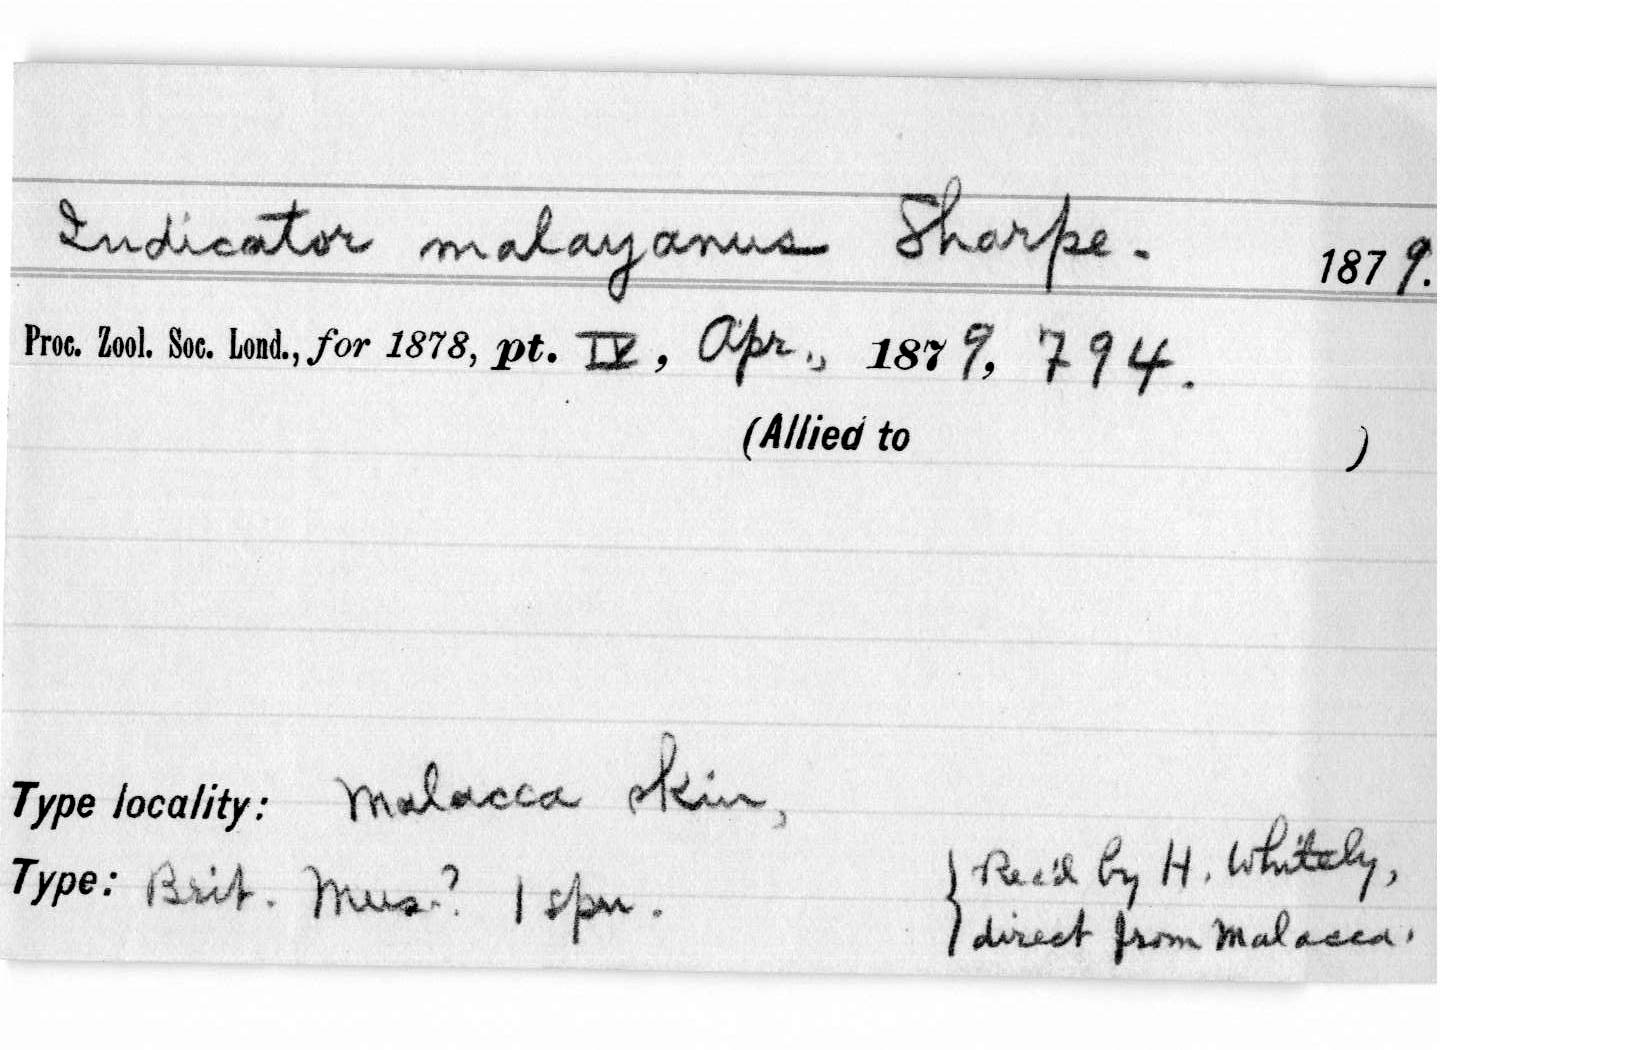 Indicator malayanus Sharpe. 1879.
Proc. Zool. Soc. Lond., for 1878, pt. IV, Apr., 1879, 794.
(Allied to )
Type locality: Malacca skin,
Type: Brit. Mus? 1 spm. } Rec'd by H. Whitely,
direct from Malacca.